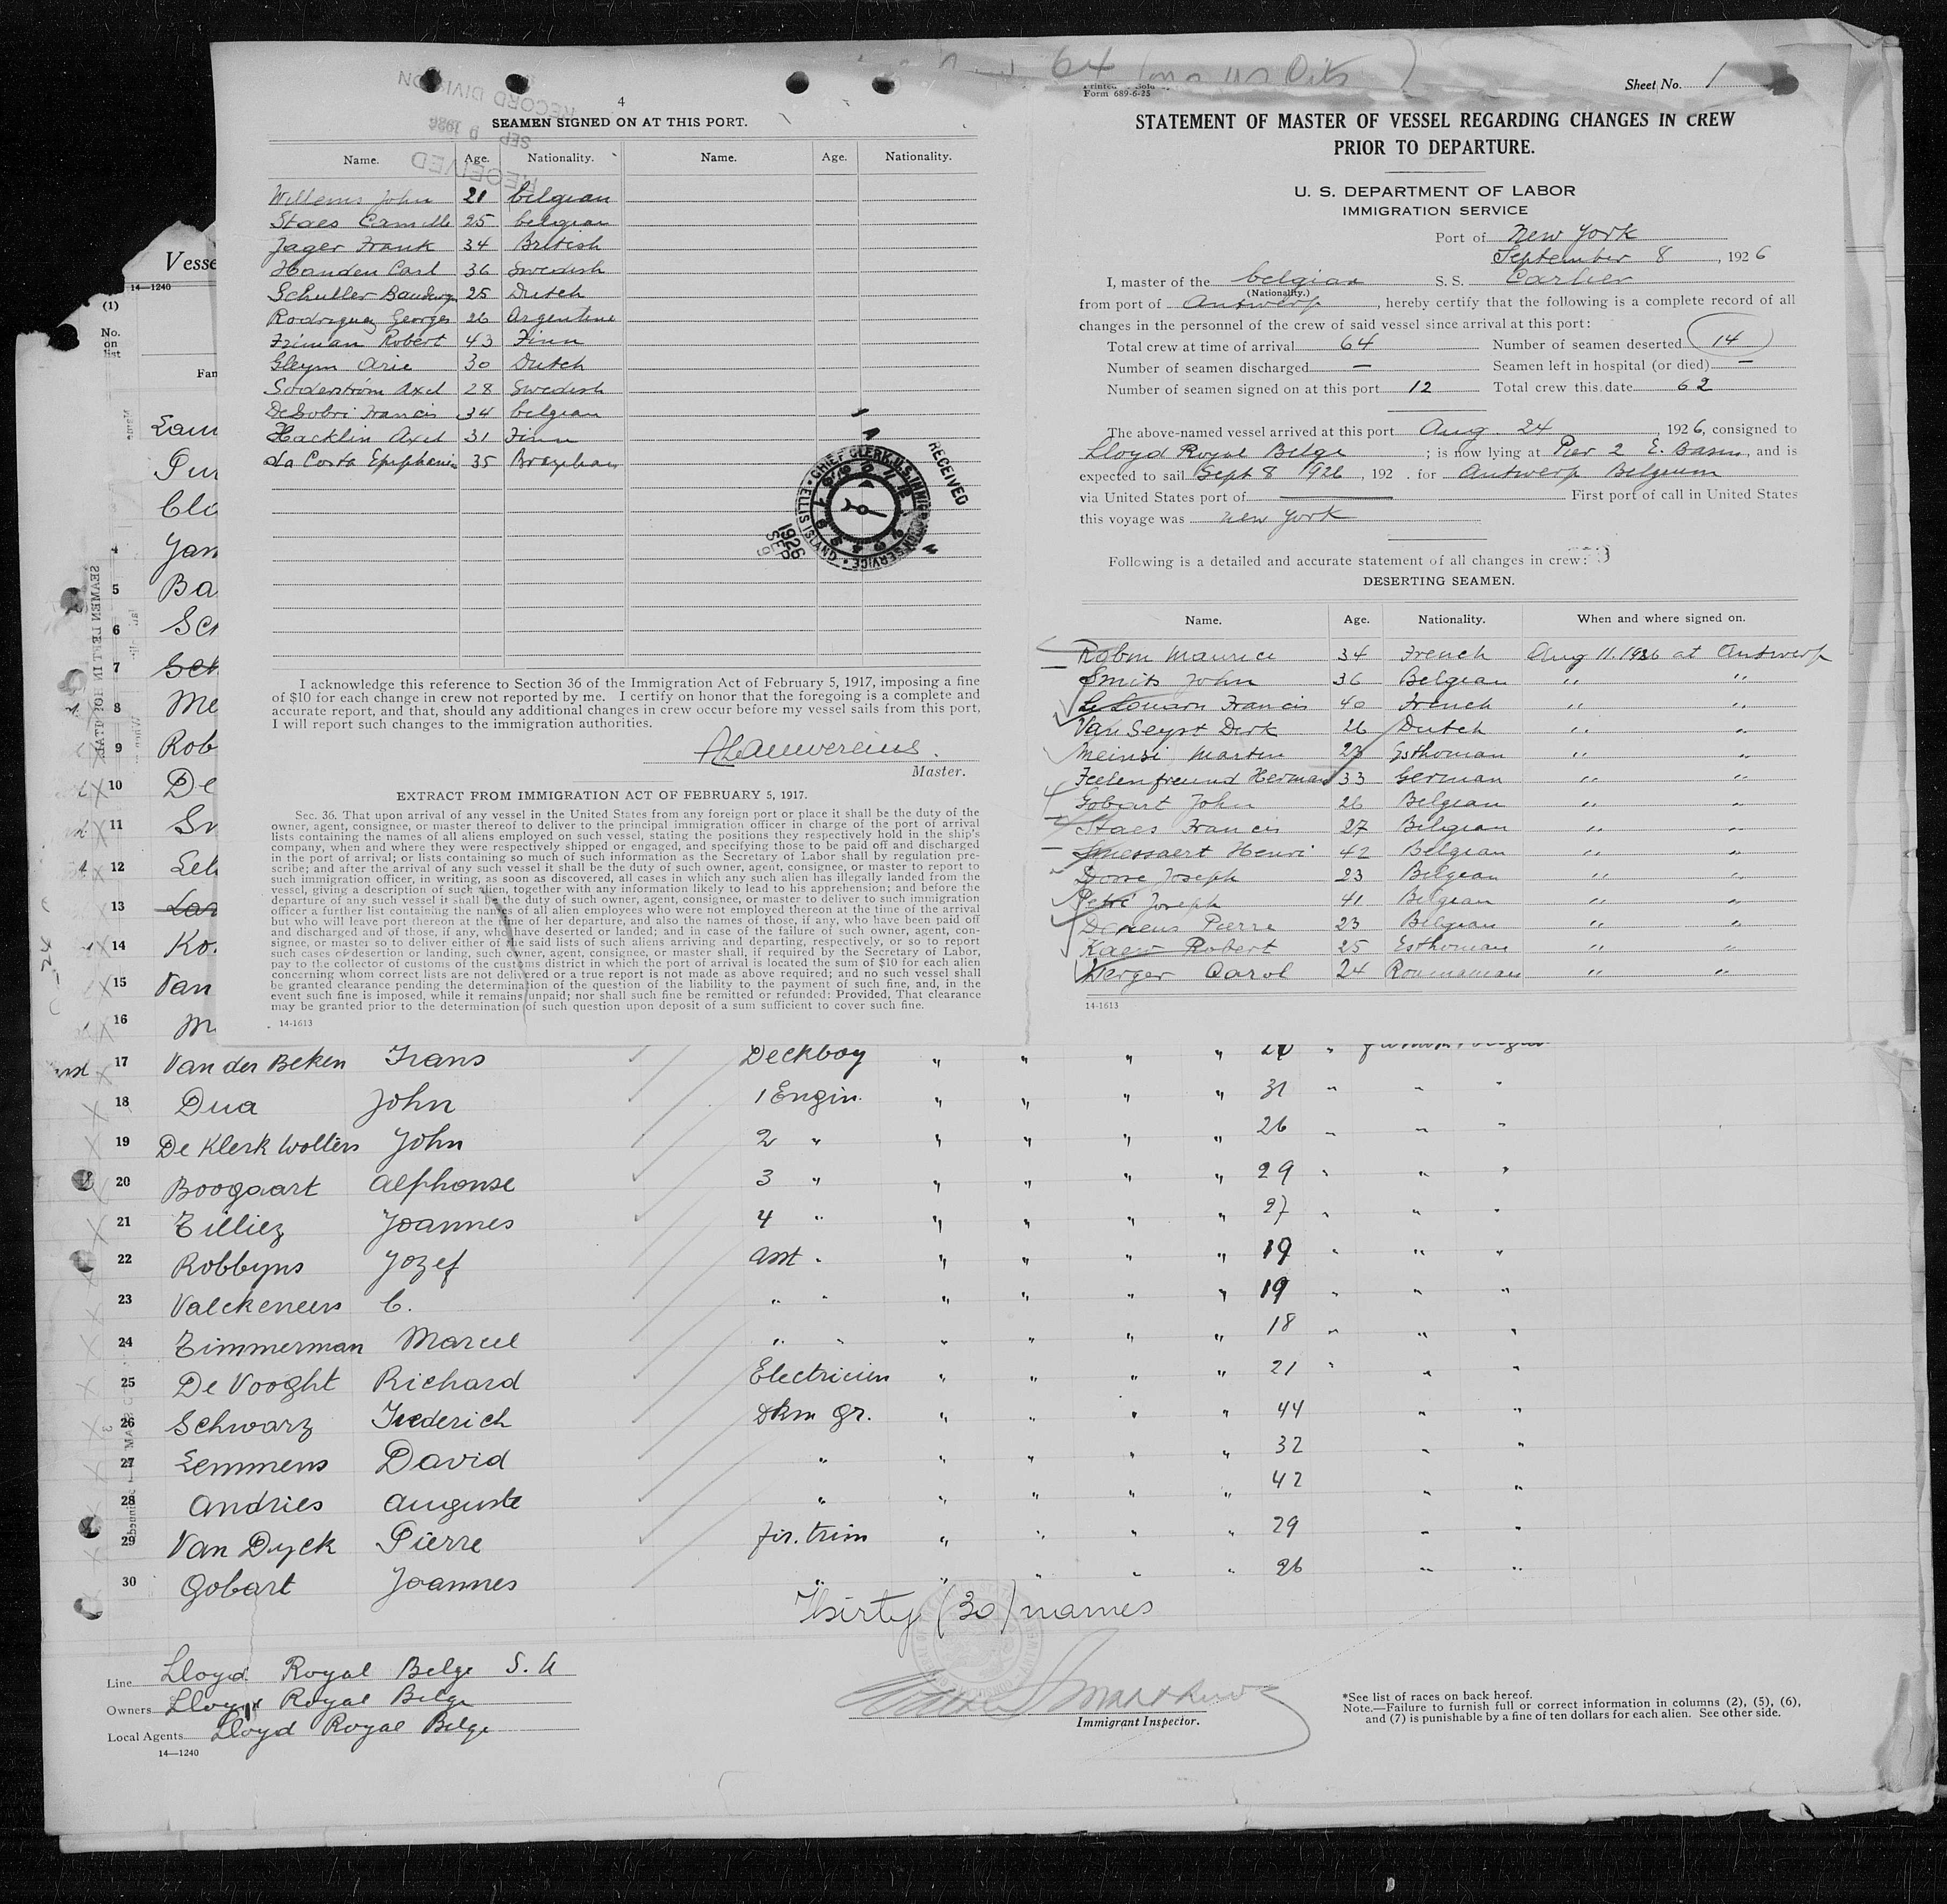 4
SEAMEN SIGNED ON AT THIS PORT.
Name. Age. Nationality. Name. Age. Nationality.
Willems John 21 belgian
Staes Camille 25 belgian
Jager Frank 34 British
Handen Carl 36 Swedish
Schuller 25 Dutch
Rodriguez Georges 26 Argentine
Friman Robert 43 Finn
Gleym Arie 30 Dutch
Söderström Axel 28 Swedish
Francis 34 belgian
Hacklin Axel 31 Finn
da Costa 35
RECEIVED
CHIEF CLERK, U.S. IMMIGRATION SERVICE • ELLIS ISLAND •
1926 SEP 9
I acknowledge this reference to Section 36 of the Immigration Act of February 5, 1917, imposing a fine
of $10 for each change in crew not reported by me. I certify on honor that the foregoing is a complete and
accurate report, and that, should any additional changes in crew occur before my vessel sails from this port,
I will report such changes to the immigration authorities.
Master.
EXTRACT FROM IMMIGRATION ACT OF FEBRUARY 5, 1917.
Sec. 36. That upon arrival of any vessel in the United States from any foreign port or place it shall be the duty of the
owner, agent, consignee, or master thereof to deliver to the principal immigration officer in charge of the port of arrival
lists containing the names of all aliens employed on such vessel, stating the positions they respectively hold in the ship's
company, when and where they were respectively shipped or engaged, and specifying those to be paid off and discharged
in the port of arrival; or lists containing so much of such information as the Secretary of Labor shall by regulation pre-
scribe; and after the arrival of any such vessel it shall be the duty of such owner, agent, consignee, or master to report to
such immigration officer, in writing, as soon as discovered, all cases in which any such alien has illegally landed from the
vessel, giving a description of such alien, together with any information likely to lead to his apprehension; and before the
departure of any such vessel it shall be the duty of such owner, agent, consignee, or master to deliver to such immigration
officer a further list containing the names of all alien employees who were not employed thereon at the time of the arrival
but who will leave port thereon at the time of her departure, and also the names of those, if any, who have been paid off
and discharged and of those, if any, who have deserted or landed; and in case of the failure of such owner, agent, con-
signee, or master so to deliver either of the said lists of such aliens arriving and departing, respectively, or so to report
such cases of desertion or landing, such owner, agent, consignee, or master shall, if required by the Secretary of Labor,
pay to the collector of customs of the customs district in which the port of arrival is located the sum of $10 for each alien
concerning whom correct lists are not delivered or a true report is not made as above required; and no such vessel shall
be granted clearance pending the determination of the question of the liability to the payment of such fine, and, in the
event such fine is imposed, while it remains unpaid; nor shall such fine be remitted or refunded: Provided, That clearance
may be granted prior to the determination of such question upon deposit of a sum sufficient to cover such fine.
14-1613
64
Form 689-6-25
Sheet No. 1
STATEMENT OF MASTER OF VESSEL REGARDING CHANGES IN CREW
PRIOR TO DEPARTURE.
U. S. DEPARTMENT OF LABOR
IMMIGRATION SERVICE
Port of New York
September 8, 1926
I, master of the belgian S. S. Carlier
(Nationality.)
from port of Antwerp, hereby certify that the following is a complete record of all
changes in the personnel of the crew of said vessel since arrival at this port:
Total crew at time of arrival 64 Number of seamen deserted 14
Number of seamen discharged — Seamen left in hospital (or died) —
Number of seamen signed on at this port 12 Total crew this date 62
The above-named vessel arrived at this port Aug. 24, 1926, consigned to
Lloyd Royal Belge; is now lying at Pier 2 E. Basin, and is
expected to sail Sept 8 1926, 192 . for Antwerp Belgium
via United States port of First port of call in United States
this voyage was new york
Following is a detailed and accurate statement of all changes in crew:
DESERTING SEAMEN.
Name. Age. Nationality. When and where signed on.
Robin Maurice 34 French Aug 11. 1926 at Antwerp
Smits John 36 Belgian " "
Francis 40 French " "
Van Seyst Dirk 26 Dutch " "
Meinsi Martin 23 Esthonian " "
Herman 33 German " "
Gobart John 26 Belgian " "
Staes Francis 27 Belgian " "
Smessaert Henri 42 Belgian " "
Joseph 23 Belgian " "
Petri Joseph 41 Belgian " "
Pierre 23 Belgian " "
Kaew Robert 25 Esthonian " "
Carol 24 Roumanian " "
14-1613
Vesse
14—1240
(1)
No.
on
list
Fan
Lam
Pur
Clo
4 Jan
5 Ba
6 Sch
7 Sch
8 Me
9 Rob
10 De
11 Sm
12 Leh
13 Lar
14 Ko
15 Van
16 M
17 Van der Beken Frans Deckboy " " " "
18 Dua John 1 Engin. " " " " 31 " " "
19 De Klerk Wolters John 2 " " " " " 26 " " "
20 Boogaart Alphonse 3 " " " " " 29 " " "
21 Tilliez Joannes 4 " " " " " 27 " " "
22 Robbyns Jozef asst " " " " " 19 " " "
23 Valckeneers C. " " " " " " 19 " " "
24 Timmerman Marcel " " " " " " 18 " " "
25 De Vooght Richard Electricien " " " " 21 " " "
26 Schwarz Frederich Dkm Gr. " " " " 44 " "
27 Lemmens David " " " " " 32 " "
28 Andries Auguste " " " " " 42 " "
29 Van Dyck Pierre fir. trim " " " " 29 " "
30 Gobart Joannes " " " " " 26 " "
Thirty (30) names
Line Lloyd Royal Belge S. A
Owners Lloyd Royal Belge
Local Agents Lloyd Royal Belge
14—1240
Immigrant Inspector.
*See list of races on back hereof.
Note.—Failure to furnish full or correct information in columns (2), (5), (6),
and (7) is punishable by a fine of ten dollars for each alien. See other side.